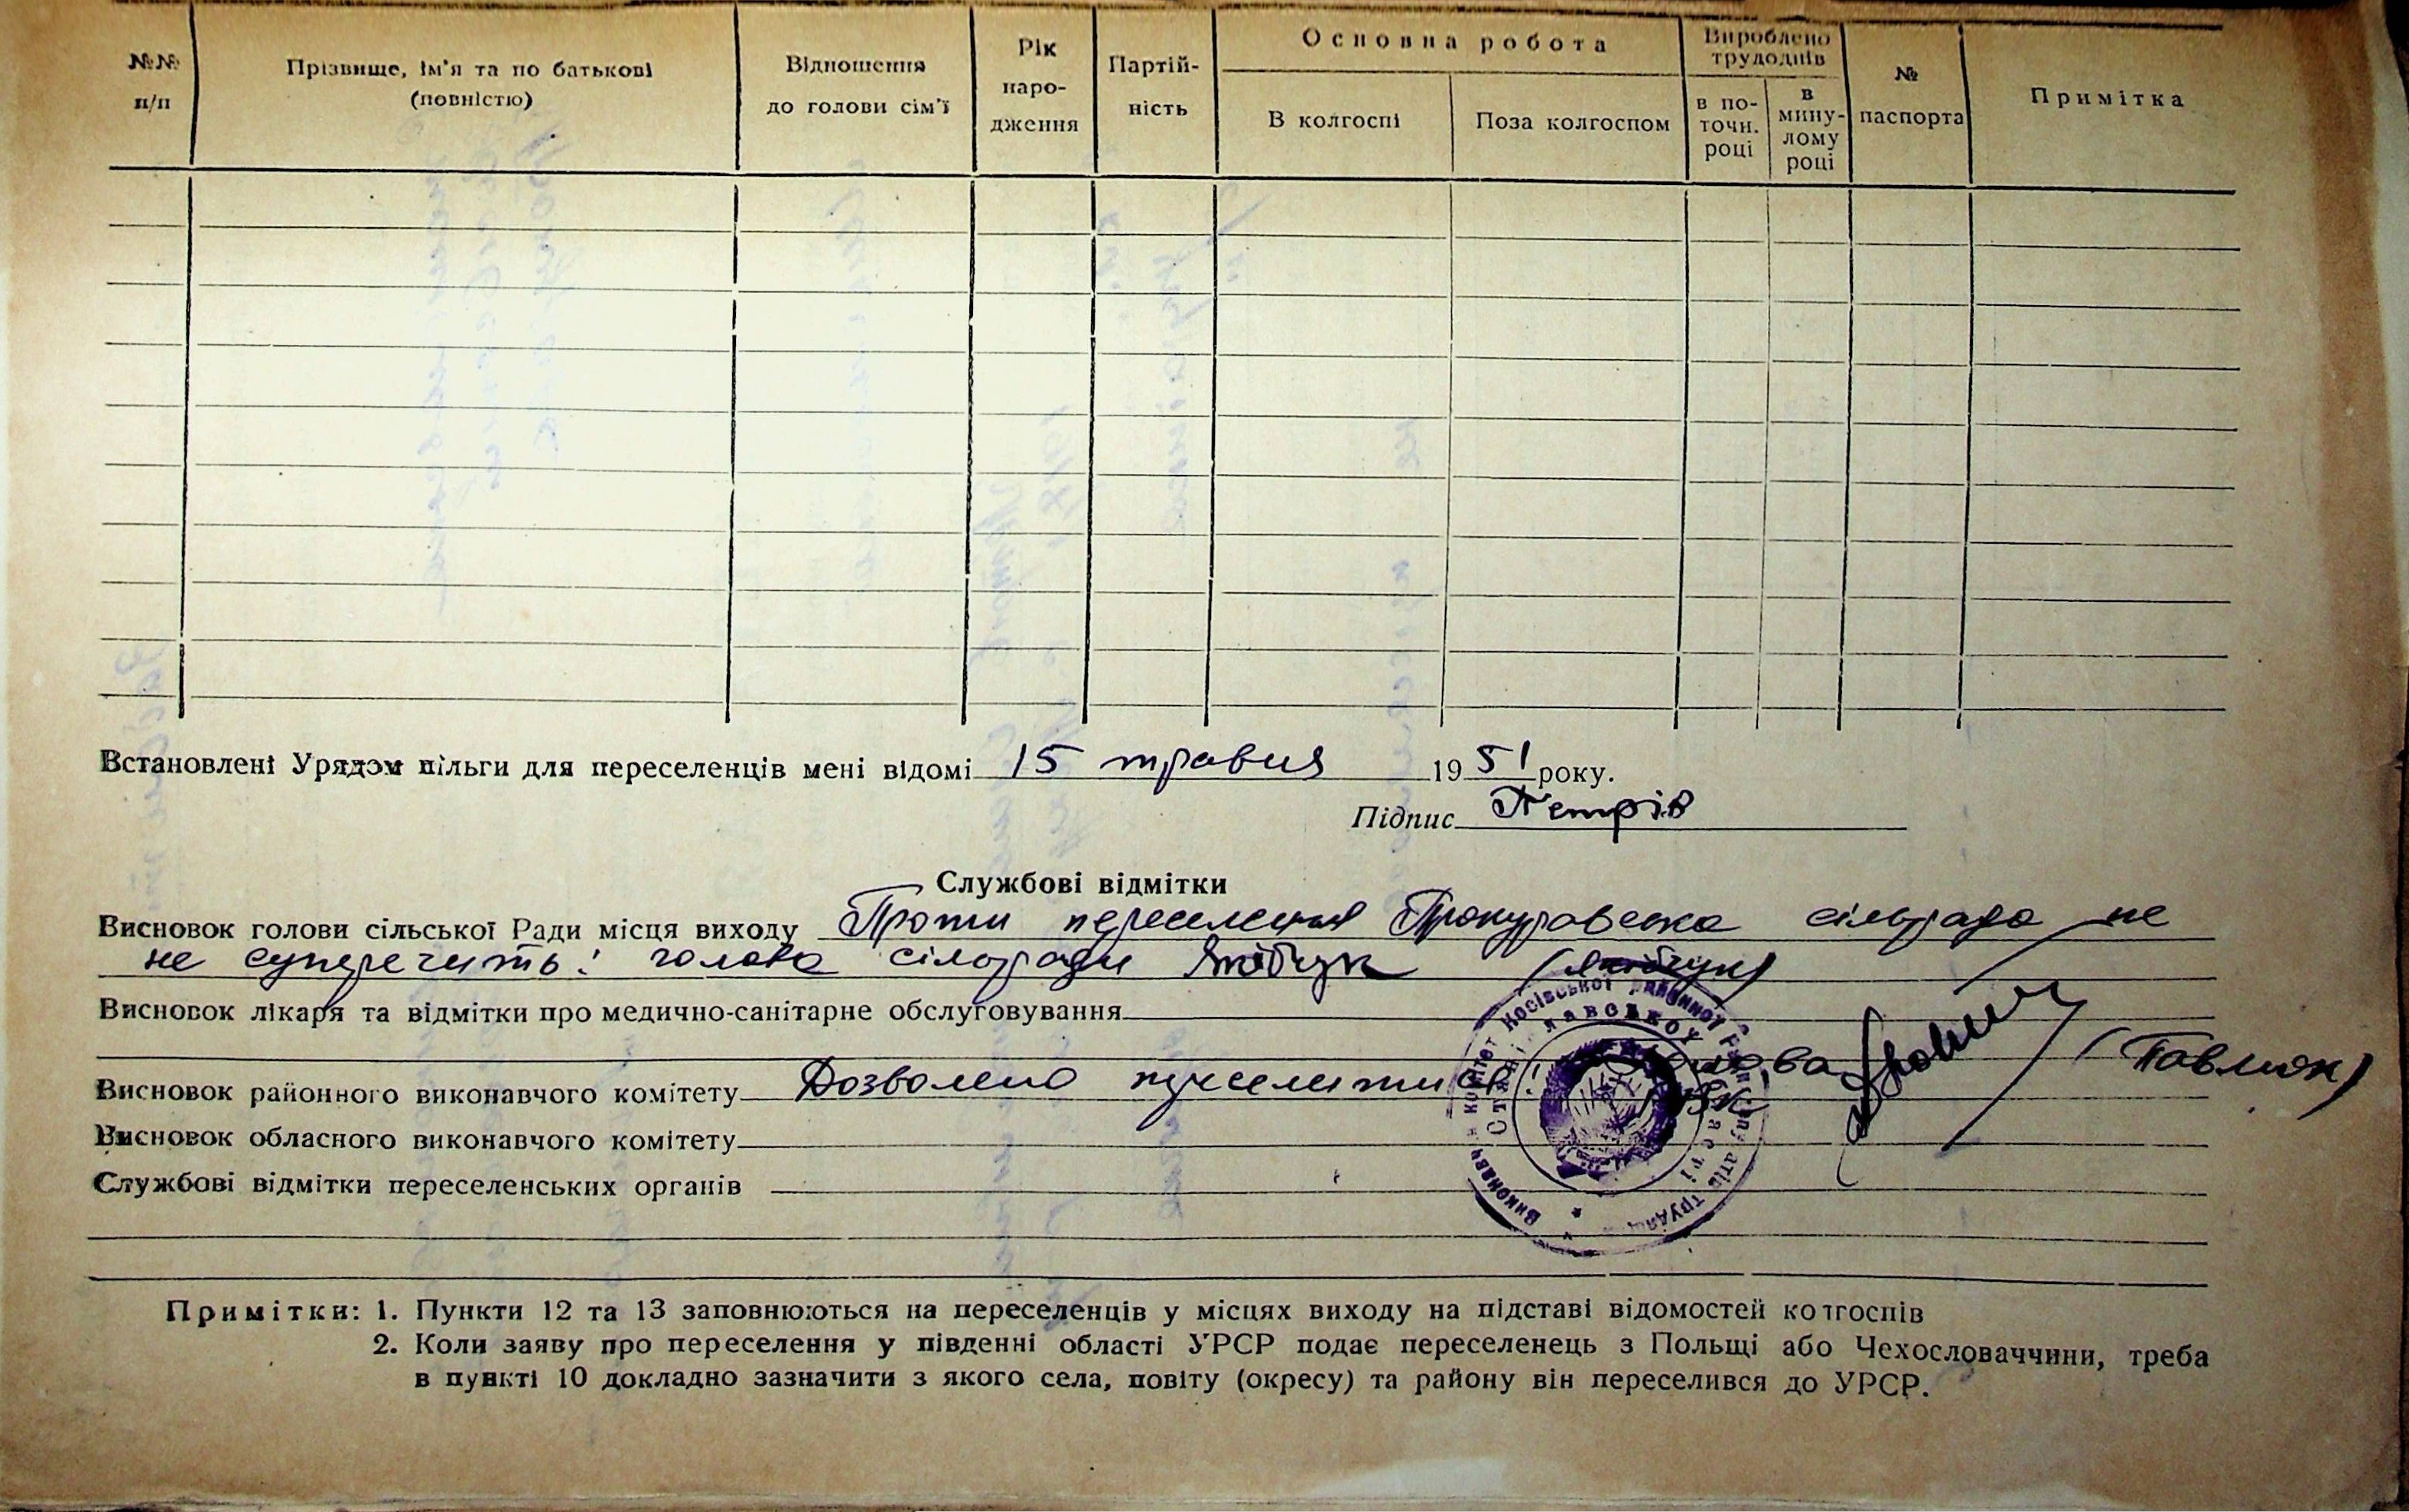 №№ п/п
Прізвище, ім'я та по батькові (повністю)
Відношення до голови сім'ї
Рік народження
Партій-ність
Основна робота
В колгоспі
Поза колгоспом
Вироблено трудоднів
в по-точн. році
в мину-лому році
№ паспорта
Примітка
Встановлені Урядом пільги для переселенців мені відомі 15 травня 1951 року.
Підпис Петрів
Службові відмітки
Висновок голови сільської Ради місця виходу Проти переселення Прокуравська сільрада не
не суперечить: голова сільради Якібчук (Якібчук)
Висновок лікаря та відмітки про медично-санітарне обслуговування
Висновок районного виконавчого комітету Дозволено переселитись: Голова (Павлюк)
Висновок обласного виконавчого комітету
Службові відмітки переселенських органів
Примітки: 1. Пункти 12 та 13 заповнюються на переселенців у місцях виходу на підставі відомостей колгоспів
2. Коли заяву про переселення у південні області УРСР подає переселенець з Польщі або Чехословаччини, треба
в пункті 10 докладно зазначити з якого села, повіту (окресу) та району він переселився до УРСР.